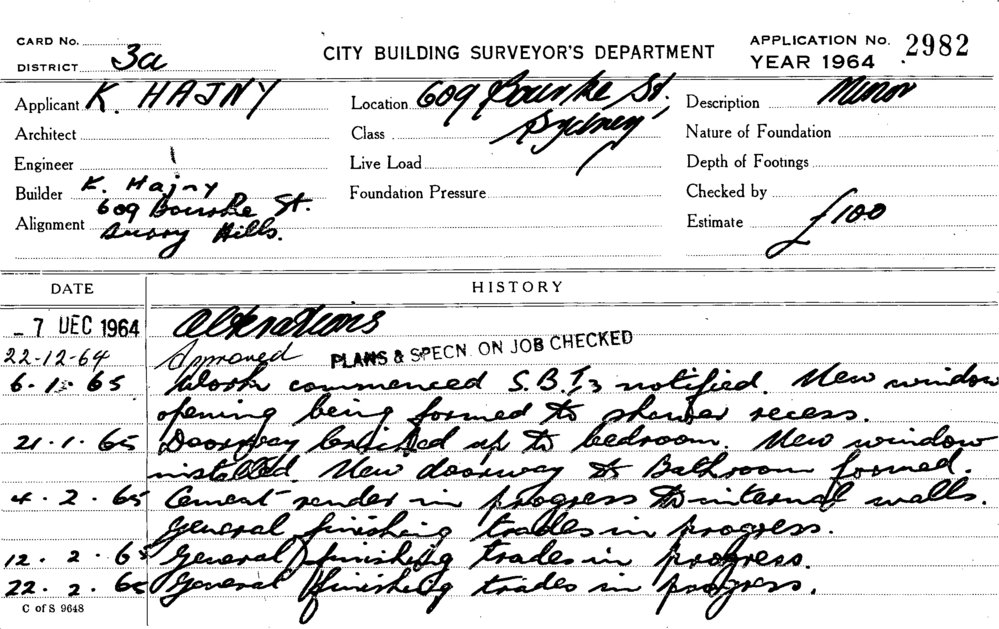 CARD No.
DISTRICT 3a
CITY BUILDING SURVEYOR'S DEPARTMENT
APPLICATION No. 2982
YEAR 1964
Applicant K. HAJNY
Location 609 Bourke St,
Sydney
Description Minor
Architect
Class
Nature of Foundation
Engineer
Live Load
Depth of Footings
Builder K. Hajny
Foundation Pressure
Checked by
609 Bourke St.
Alignment Surry Hills.
Estimate £100
DATE HISTORY
- 7 DEC 1964 Alterations
22-12-64 Approved PLANS & SPECN. ON JOB CHECKED
6. 1. 65 Work commenced S.B.I. 3 notified. New window
opening being formed to shower recess.
21. 1. 65 Doorway bricked up to bedroom. New window
installed. New doorway to Bathroom formed.
4. 2. 65 Cement render in progress to internal walls.
General finishing trades in progress.
12. 2. 65 General finishing trades in progress.
22. 2. 65 General finishing trades in progress.
C of S 9648